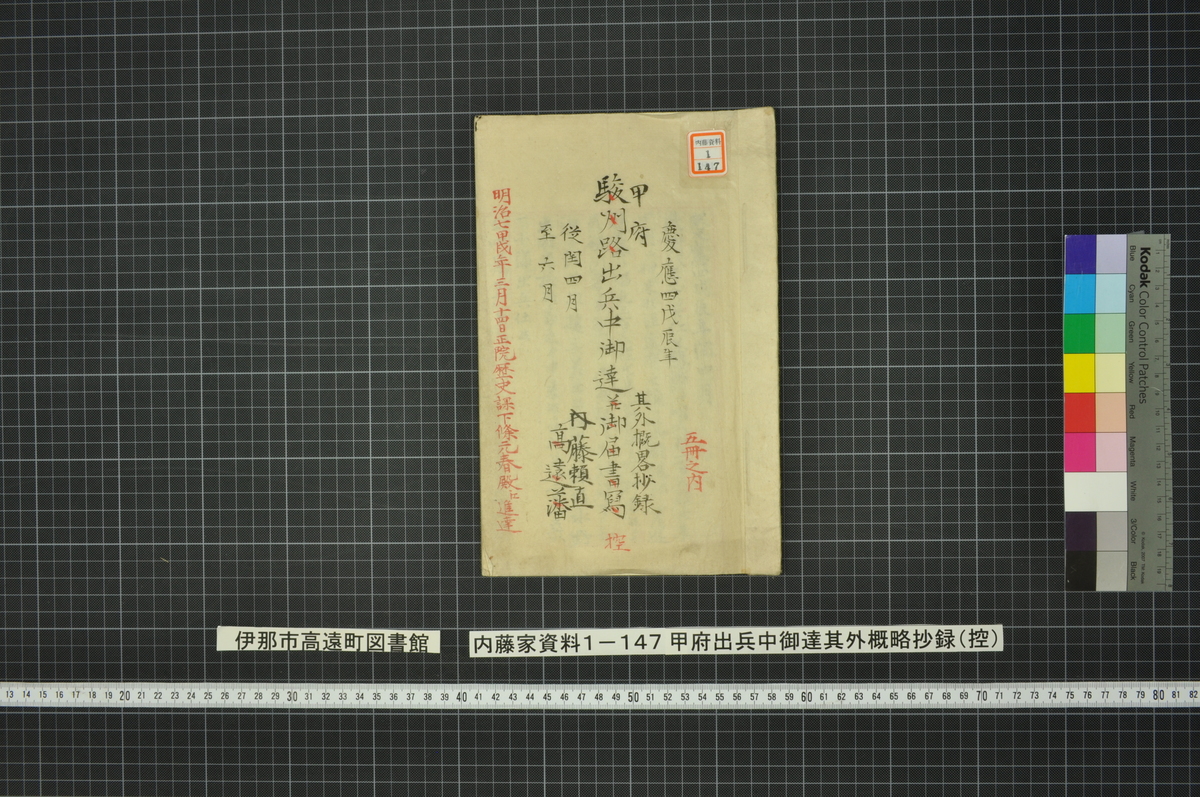 内藤資料
1
147
五冊之内
慶應四戊辰年
甲府
其外概畧抄録
駿州路出兵中御達並御届書寫
控
従閏四月
至六月
内藤頼直
高遠藩
明治七甲戌年三月十四日正院歴史課下條元春殿ニ進達
伊那市高遠町図書館
内藤家資料1－147 甲府出兵中御達其外概略抄録（控）
Kodak Color Control Patches
Blue Cyan Green Yellow Red Magenta White 3/Color Black
13 14 15 16 17 18 19 20 21 22 23 24 25 26 27 28 29 30 31 32 33 34 35 36 37 38 39 40 41 42 43 44 45 46 47 48 49 50 51 52 53 54 55 56 57 58 59 60 61 62 63 64 65 66 67 68 69 70 71 72 73 74 75 76 77 78 79 80 81 82